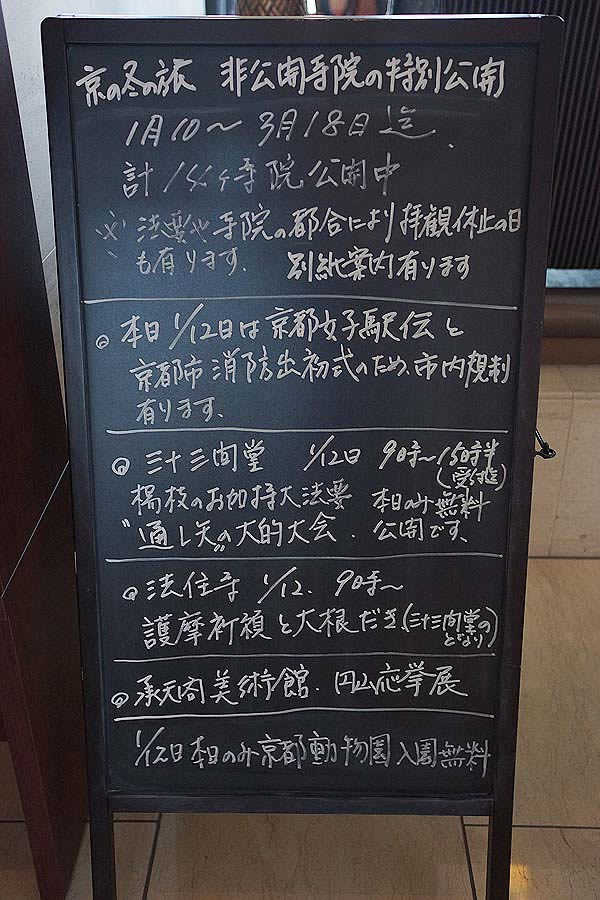 京の冬の旅 非公開寺院の特別公開
1月10～3月18日迄.
計 ヶ寺院公開中
※ 法要や寺院の都合により拝観休止の日
も有ります. 別紙案内有ります
本日 1/12日は京都女子駅伝と
京都市消防出初式のため、市内規制
有ります、
三十三間堂 1/12日 9時～15時半
(受付迄)
楊枝のお加持大法要 本日のみ無料
"通し矢"の大的大会. 公開です、
法住寺 1/12. 9時～
護摩祈禱と大根だき(三十三間堂の
となり)
承天閣美術館. 円山応挙展
1/12日本日のみ京都動物園入園無料